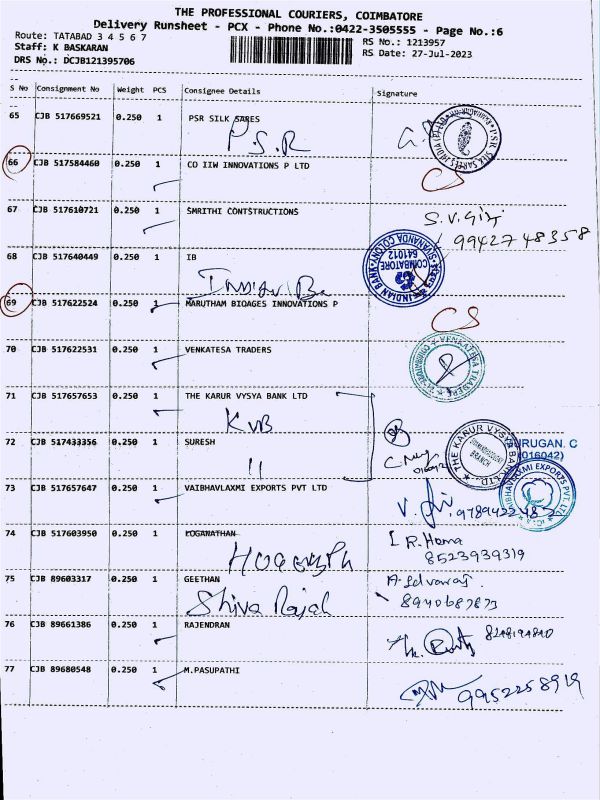 THE PROFESSIONAL COURIERS, COIMBATORE
Delivery Runsheet - PCX - Phone No.:0422-3505555 - Page No.:6
Route: TATABAD 3 4 5 6 7
RS No.: 1213957
Staff: K BASKARAN
RS Date: 27-Jul-2023
DRS No.: DCJB121395706
S No Consignment No Weight PCS Consignee Details Signature
65 CJB 517669521 0.250 1 PSR SILK SARES
P.S.R
66 CJB 517584460 0.250 1 CO IIW INNOVATIONS P LTD
CS
67 CJB 517610721 0.250 1 SMRITHI CONTSTRUCTIONS
S.V.Giri
9942748358
68 CJB 517640449 0.250 1 IB
INDIAN BANK
SIVANANDA COLONY
COIMBATORE
641012
69 CJB 517622524 0.250 1 MARUTHAM BIOAGES INNOVATIONS P
CS
70 CJB 517622531 0.250 1 VENKATESA TRADERS
VENKATESA TRADERS
71 CJB 517657653 0.250 1 THE KARUR VYSYA BANK LTD
KVB
72 CJB 517433356 0.250 1 SURESH
11
THE KARUR VYSYA BANK LTD.
BRANCH
URUGAN. C
(016042)
73 CJB 517657647 0.250 1 VAIBHAVLAXMI EXPORTS PVT LTD
74 CJB 517603950 0.250 1 LOGANATHAN
R. Hema
8523939319
75 CJB 89603317 0.250 1 GEETHAN
Shiva Rajah
A. Selvaraj
8940687873
76 CJB 89661386 0.250 1 RAJENDRAN
77 CJB 89680548 0.250 1 M.PASUPATHI
9952258919